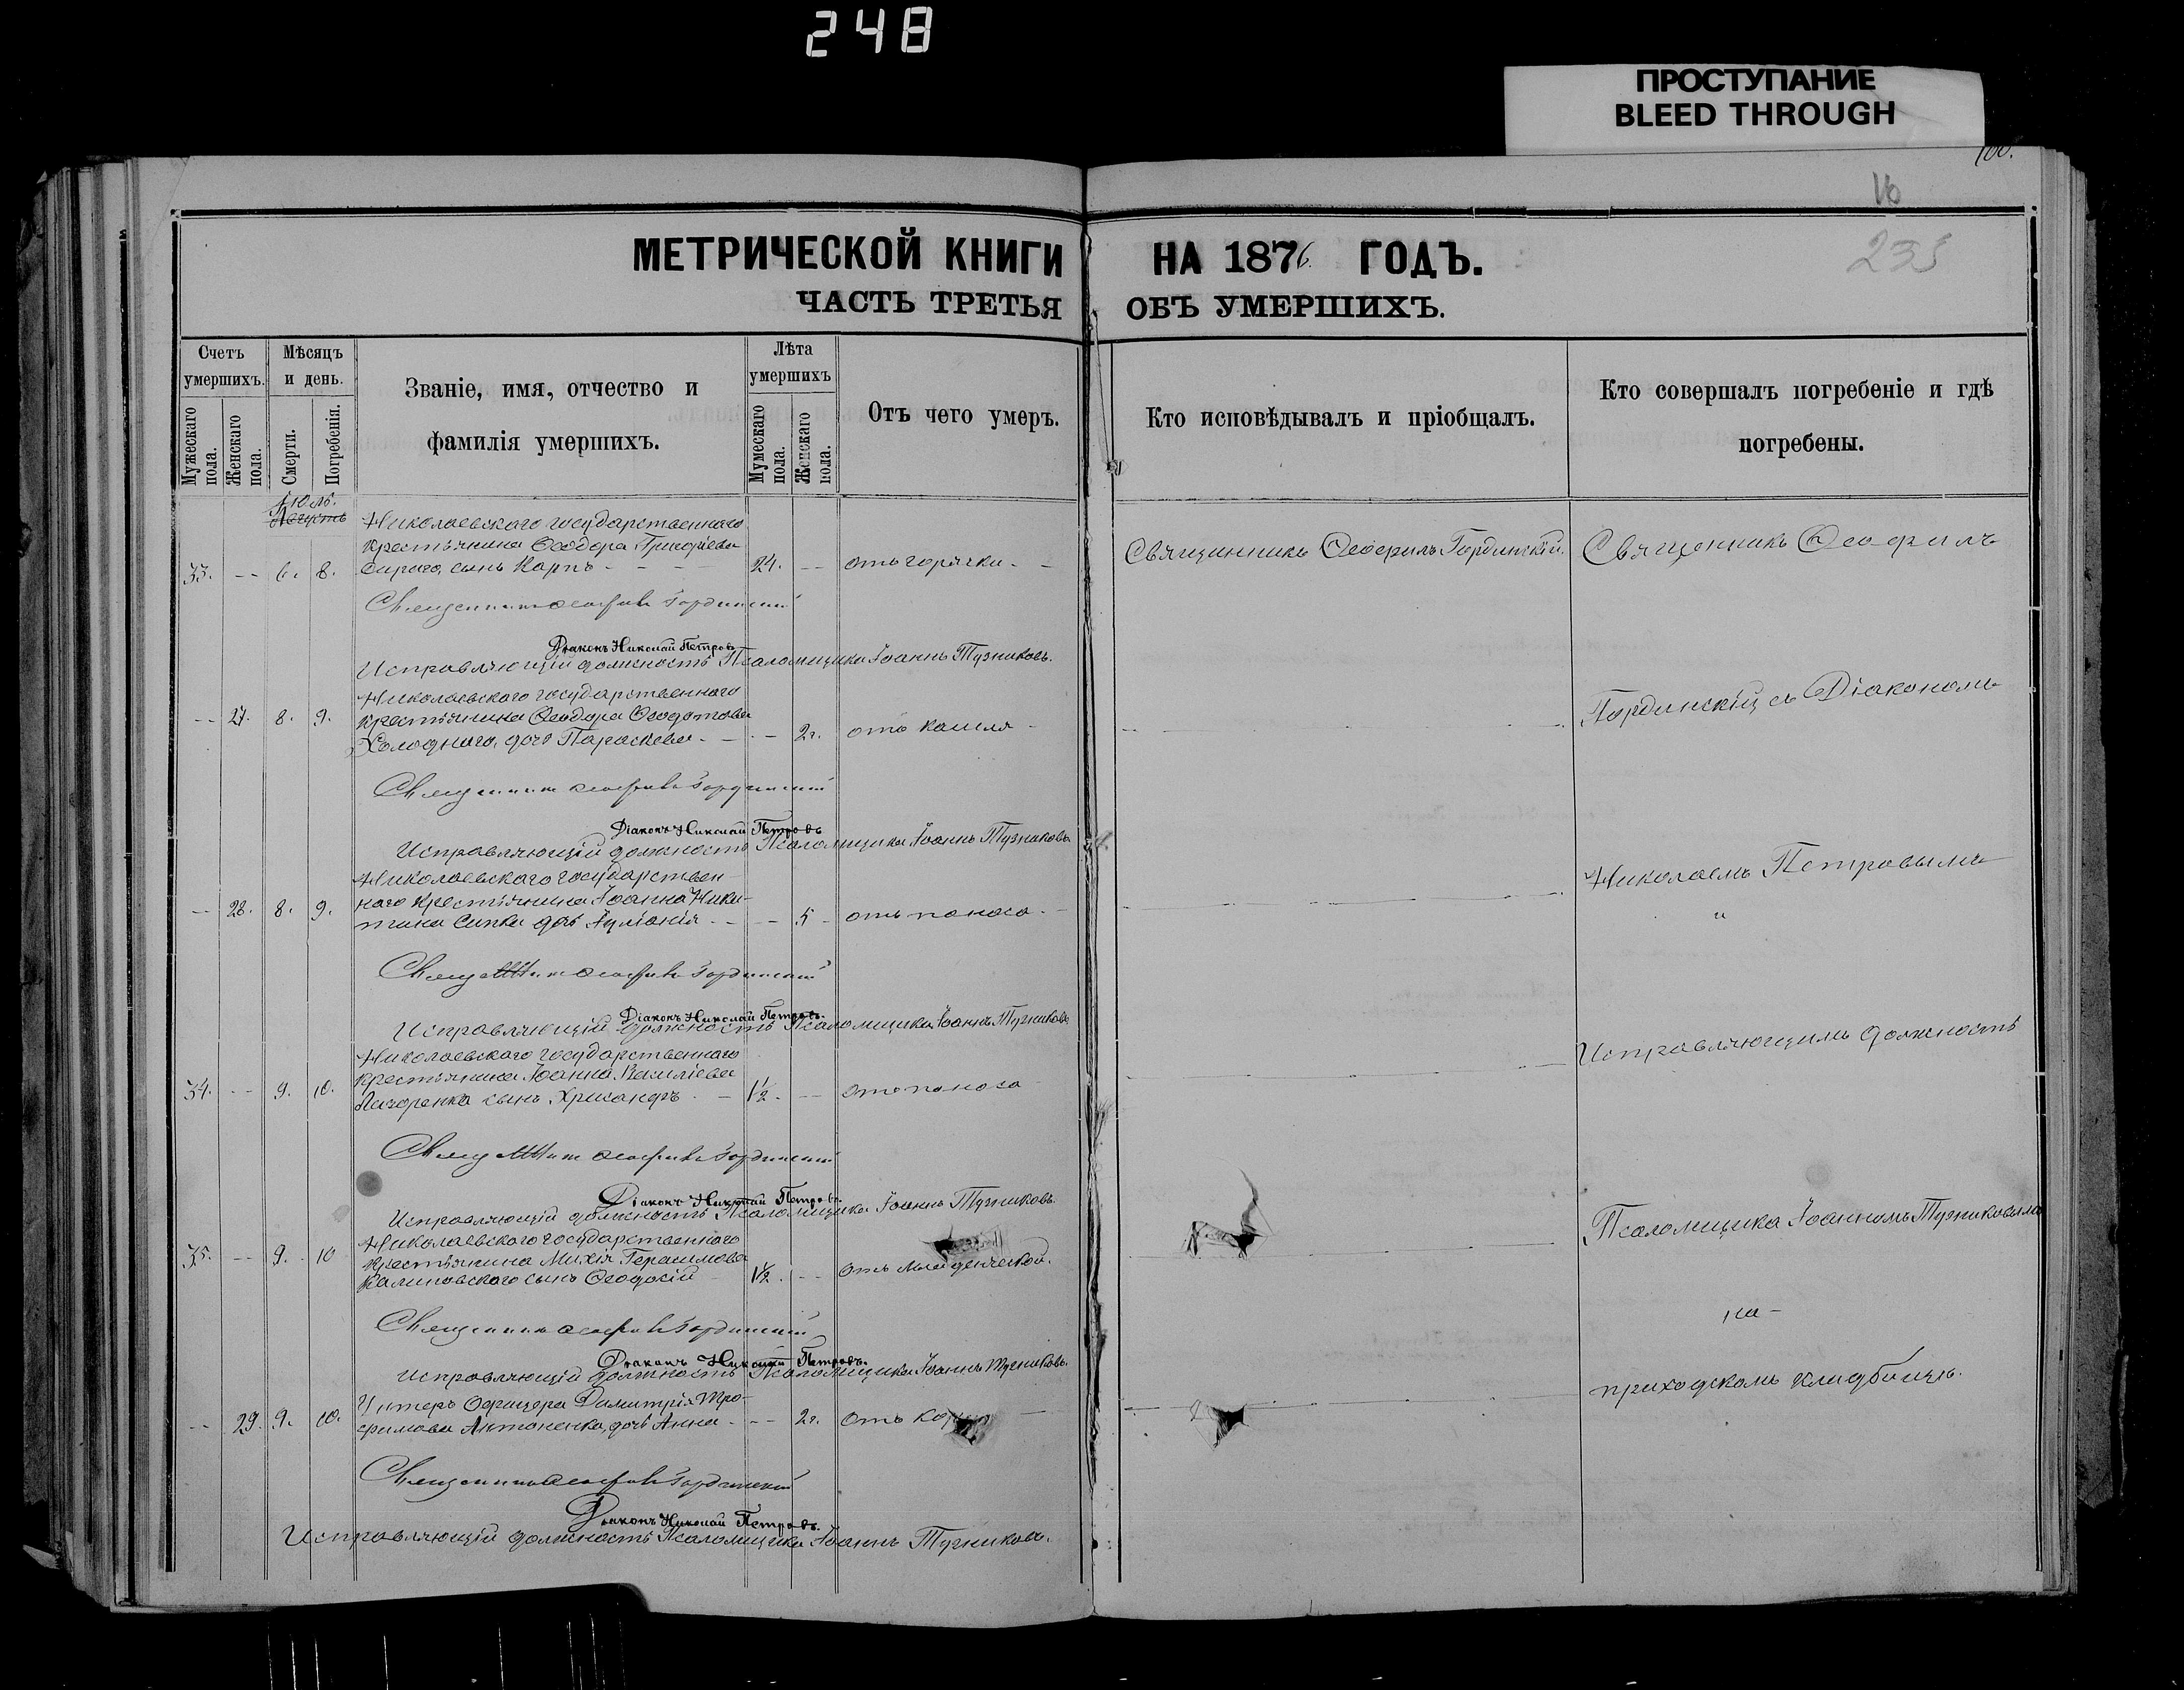 248
ПРОСТУПАНИЕ
BLEED THROUGH
100.
16
235
МЕТРИЧЕСКОЙ КНИГИ НА 1876. ГОДЪ.
ЧАСТЬ ТРЕТЬЯ ОБЪ УМЕРШИХЪ.
Счетъ умершихъ.
Мужескаго пола.
Женскаго пола.
Мѣсяцъ и день.
Смерти.
Погребенія.
Званіе, имя, отчество и
фамилія умершихъ.
Лѣта умершихъ
Мужескаго пола.
Женскаго пола.
Отъ чего умеръ.
Кто исповѣдывалъ и пріобщалъ.
Кто совершалъ погребеніе и гдѣ
погребены.
Іюль.
Августъ
Николаевского государственного
крестьянина Ѳеодора Григоріева
33. -- 6. 8. Сираго, сынъ Карпъ - - - 24. -- отъ горячки - -
Священникъ Ѳеофилъ Гординскій.
Священникъ Ѳеофилъ
Священникъ Ѳеофилъ Гординскій
Діаконъ Николай Петровъ
Исправляющій должность Псаломщика Іоаннъ Тузниковъ.
Николаевского государственного
-- 27. 8. 9. крестьянина Ѳеодора Ѳеодотова
Холодного, дочь Параскева - - - 2г. отъ кашля -
Гординскій съ Діакономъ
Священникъ Ѳеофилъ Гординскій
Діаконъ Николай Петровъ
Исправляющій должность Псаломщика Іоаннъ Тузниковъ
Николаевского государствен-
-- 28. 8. 9. ного крестьянина Іоанна Ники-
тина дочь Іуліанія - - - 5 - отъ поноса -
Николаемъ Петровымъ
"
Священникъ Ѳеофилъ Гординскій
Діаконъ Николай Петровъ.
Исправляющій должность Псаломщика Іоаннъ Тузниковъ
Николаевского государственного
крестьянина Іоанна Василіева
34. -- 9. 10. сынъ Хрисанфъ - - 1½. -- отъ поноса
Исправляющимъ должность
Священникъ Ѳеофилъ Гординскій
Діаконъ Николай Петровъ.
Исправляющій должность Псаломщика Іоаннъ Тузниковъ.
Николаевского государственного
35. -- 9. 10 крестьянина Михія Герасимова
Калиновского сынъ Ѳеодосій 1½. -- отъ младенческой.
Псаломщика Іоанномъ Тузниковымъ
Священникъ Ѳеофилъ Гординскій
на -
Діаконъ Николай Петровъ.
Исправляющій должность Псаломщика Іоаннъ Тузниковъ.
Унтеръ Офицера Димитрія Тро-
-- 29. 9. 10. фимова Антоненка, дочь Анна - -- 2г. отъ
приходскомъ кладбищѣ.
Священникъ Ѳеофилъ Гординскій
Діаконъ Николай Петровъ.
Исправляющій должность Псаломщика Іоаннъ Тузниковъ.